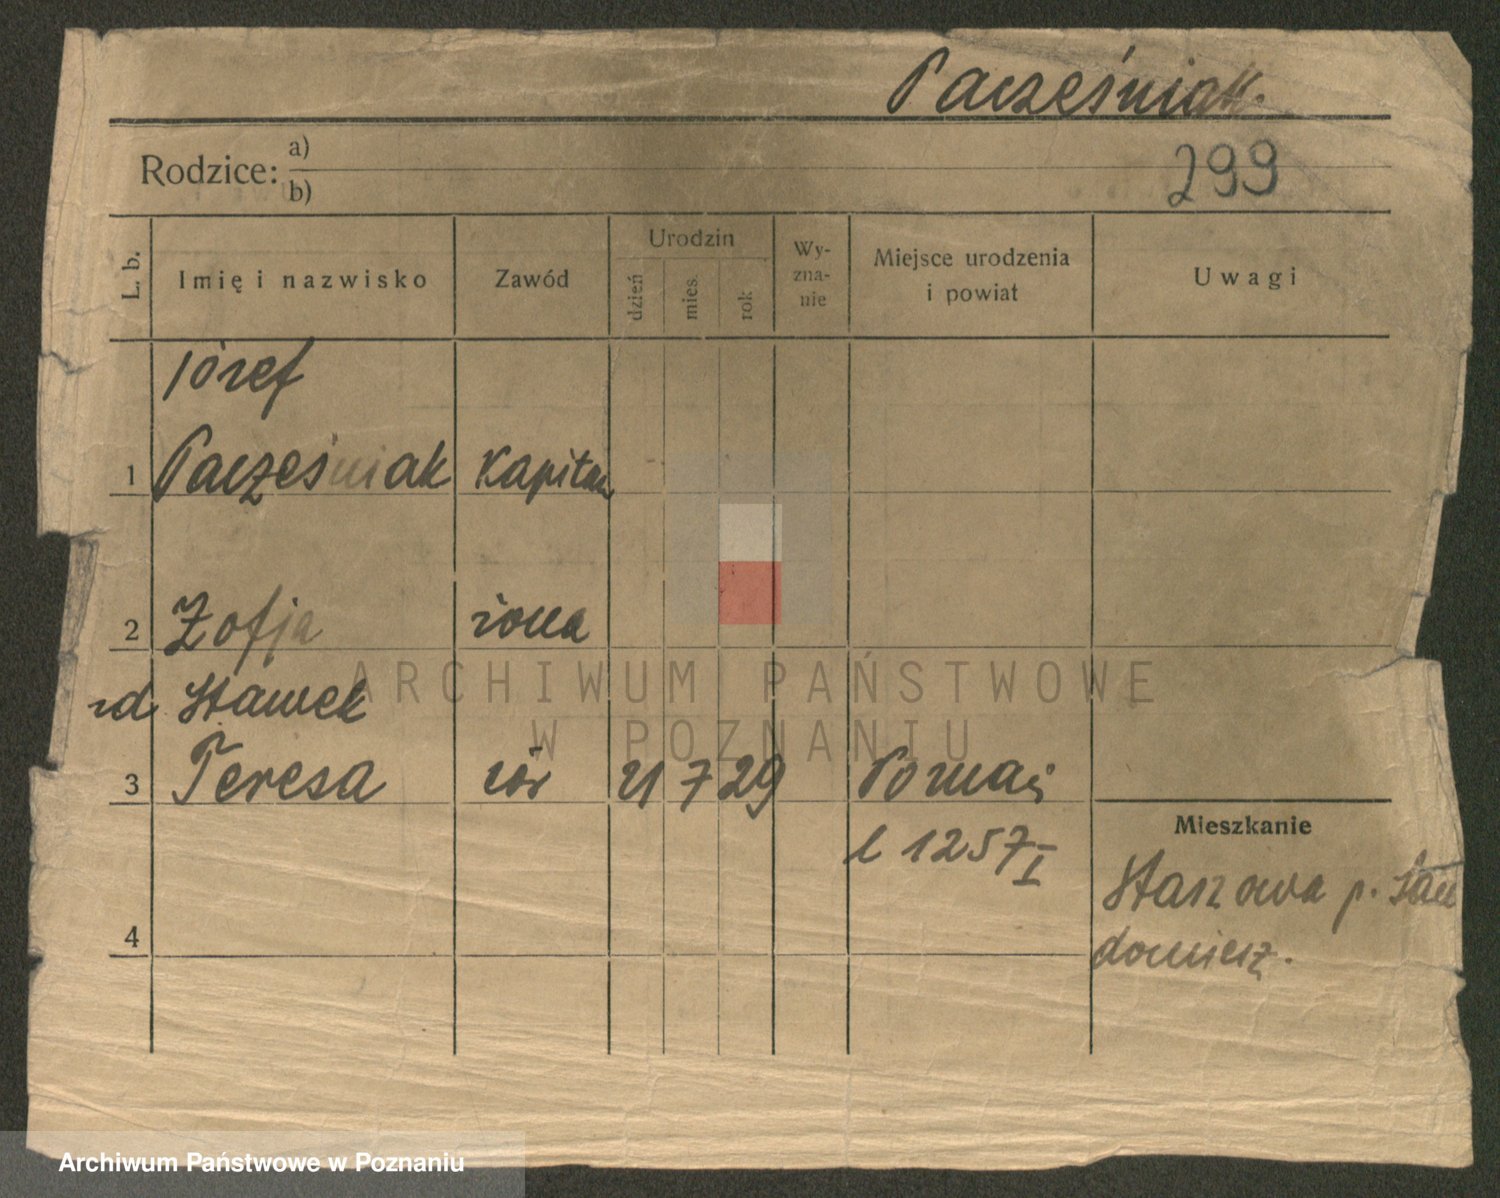 Pacześniak.
Rodzice: a)
b)
299
L. b.
Imię i nazwisko
Zawód
Urodzin
dzień
mies.
rok
Wy-
zna-
nie
Miejsce urodzenia
i powiat
Uwagi
Józef
1 Pacześniak Kapitan
2 Zofja żona
zd Stawek
3 Teresa cór 21 7 29 Poznań
l 1257 I
Mieszkanie
Staszowa p. San
domierz.
4
ARCHIWUM PAŃSTWOWE
W POZNANIU
Archiwum Państwowe w Poznaniu